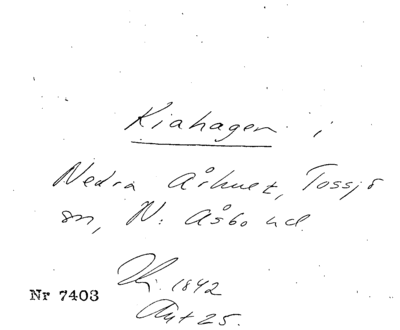 Kiahagen i
Nedra Århult, Tossjö
sn, N: Åsbo hd.
1842
Akt 25.
Nr 7403